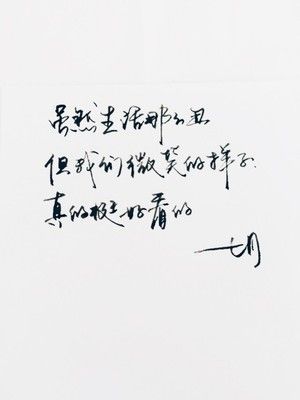 虽然生活那么丑
但我们微笑的样子
真的挺好看的
—七月